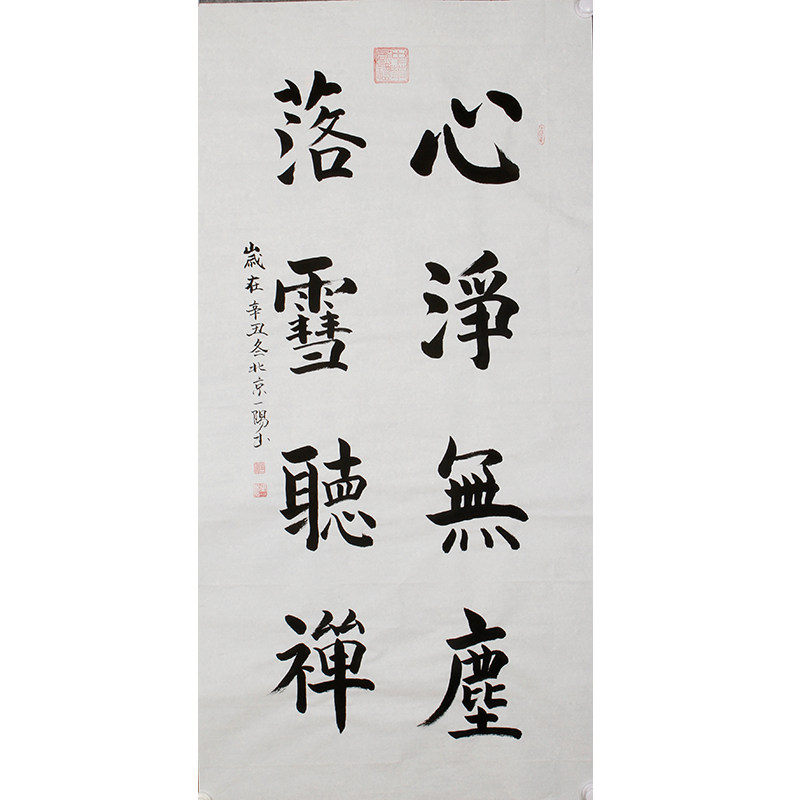 心淨無塵
落雪聽禪
歲在辛丑冬北京一陽书